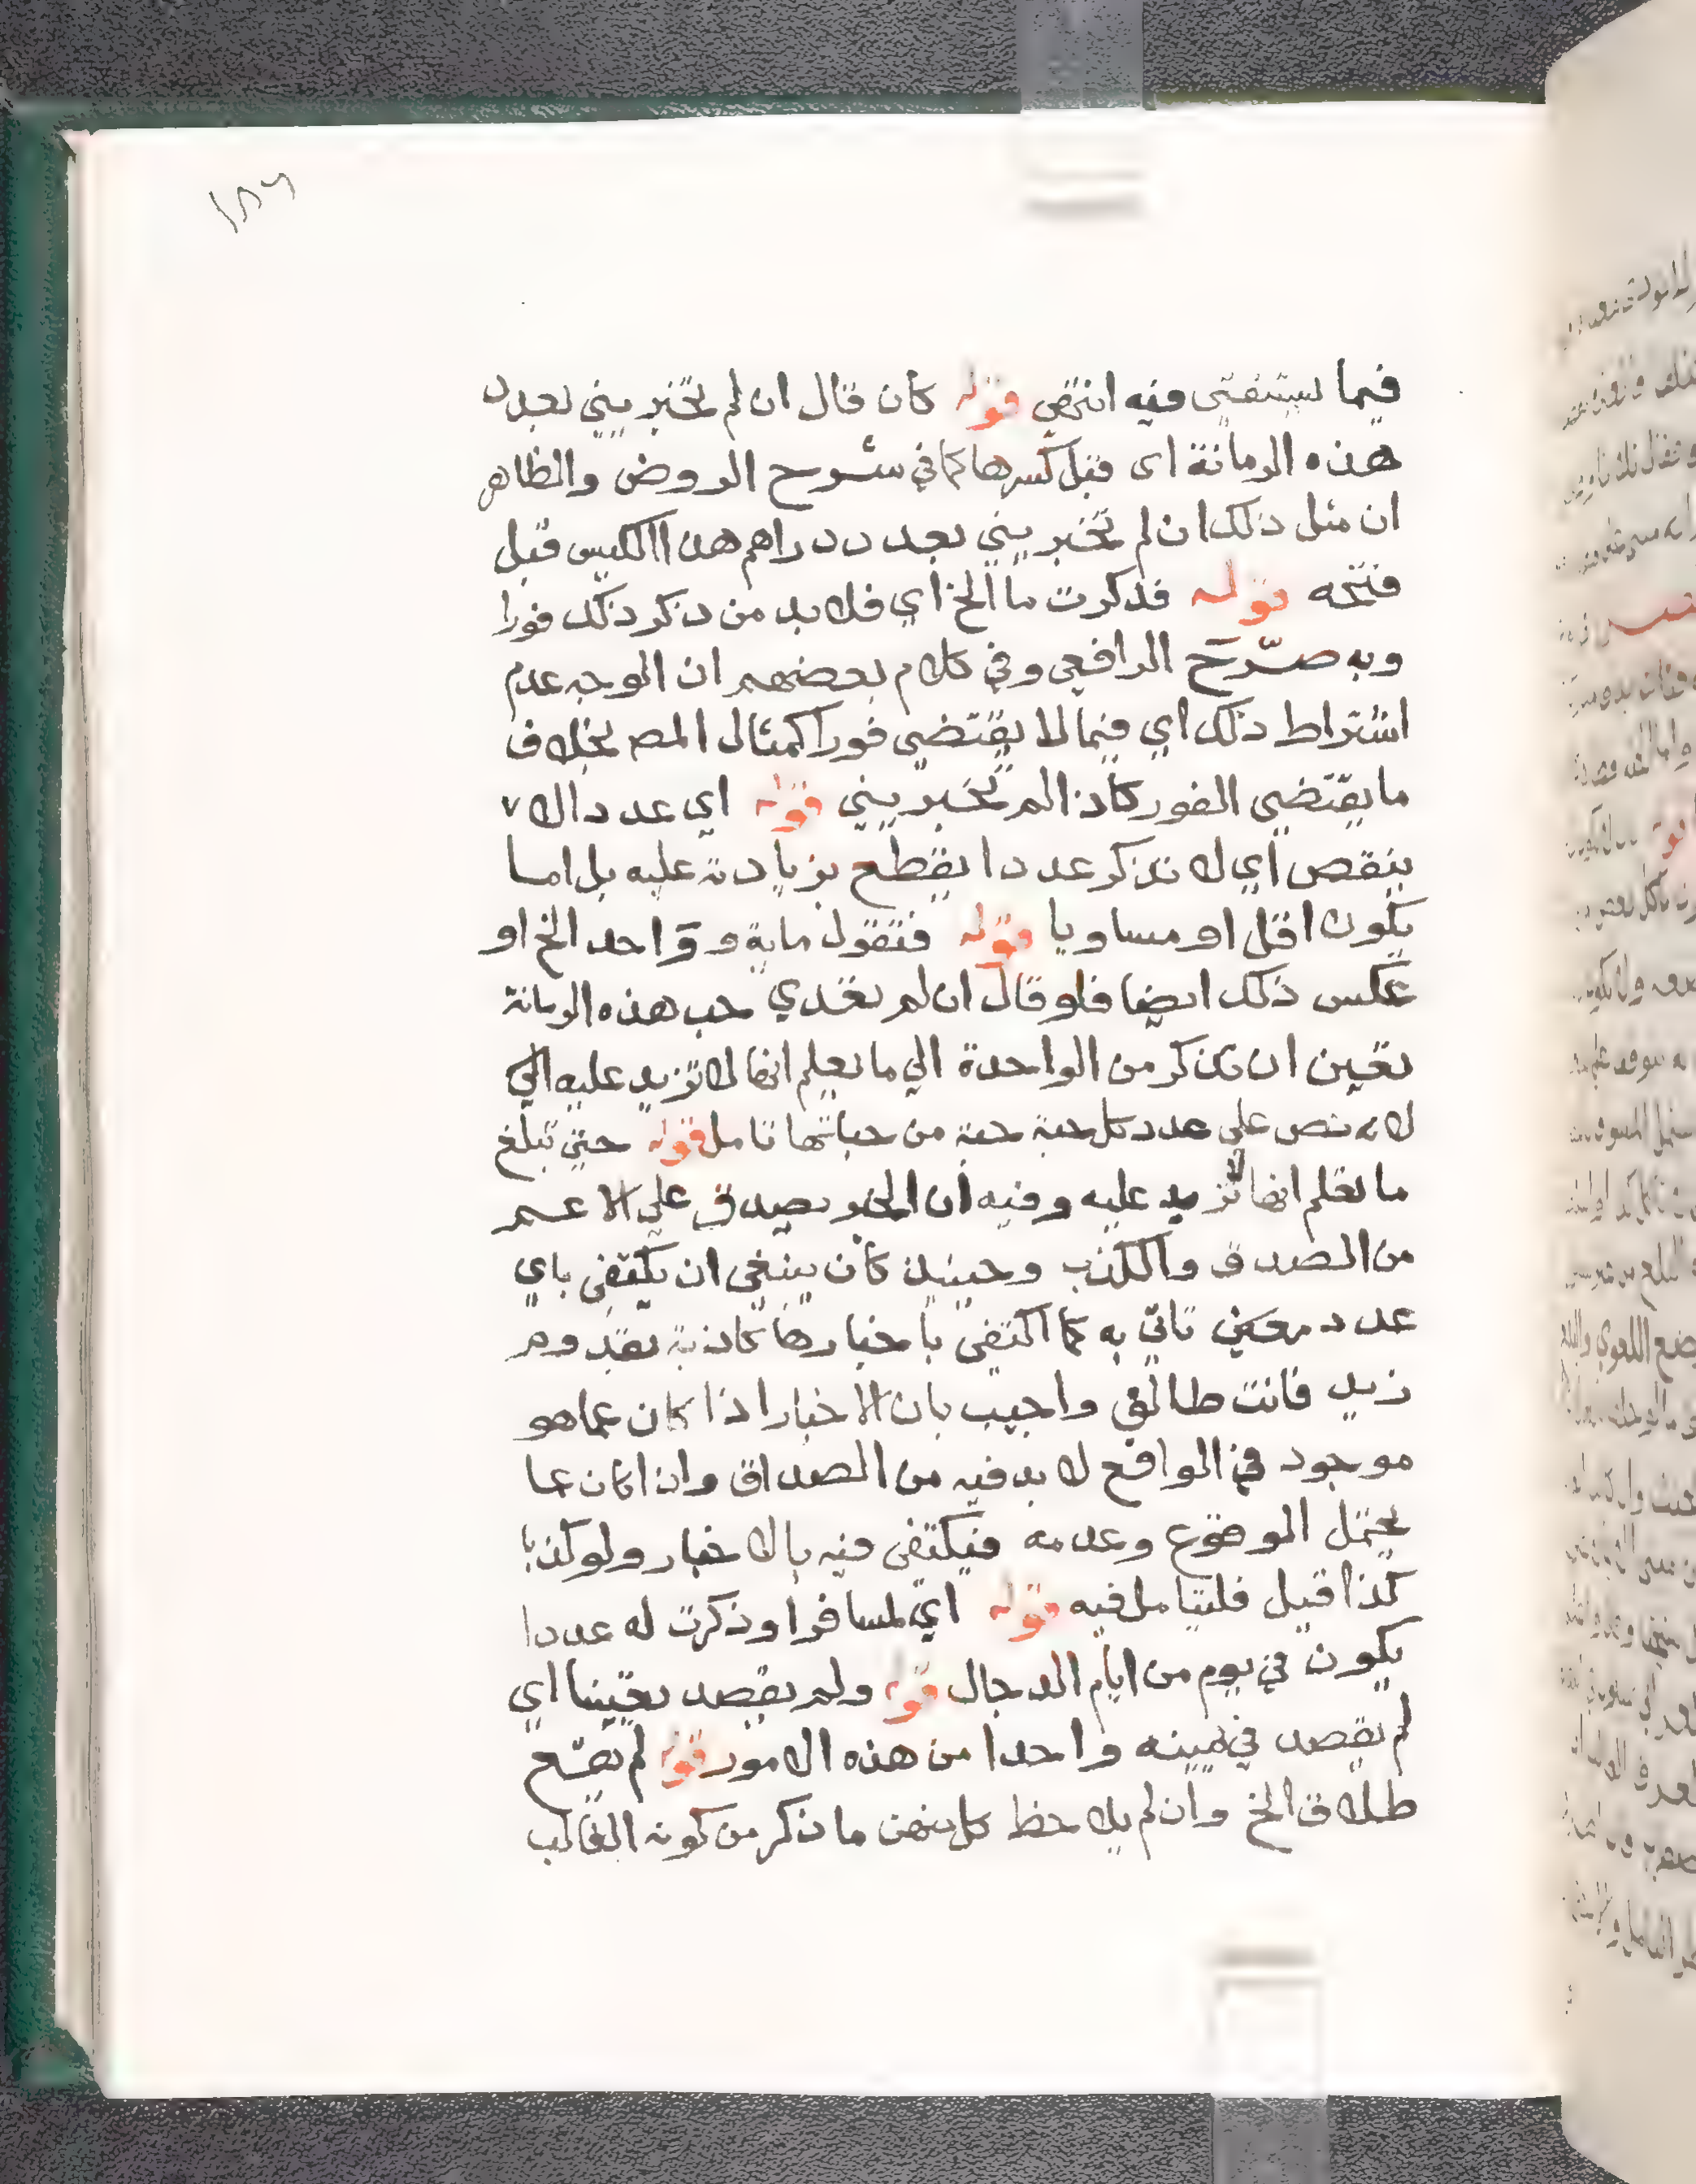 ١٨٦
فيما يستفتى فيه انتهى قوله كان قال ان لم تخبريني بعدد
هذه الرمانة اى قبل كسرها كما في شرح الروض والظاهر
ان مثل ذلك ان لم تخبريني بعدد دراهم هذا الكيس قبل
فتحه قوله فذكرت ما الخ اي فلا بد من ذكر ذلك فورا
وبه صرّح الرافعي وفي كلام بعضهم ان الوجه عدم
اشتراط ذلك اي فيما لا يقتضي فورا كمثال المص بخلاف
ما يقتضي الفور كاذا لم تخبريني قوله اي عددا لا
ينقص اي لا تذكر عددا يقطع بزيادته عليه بل اما
يكون اقل او مساويا قوله فتقول ماية و واحد الخ او
عكس ذلك ايضا فلو قال ان لم تعدي حب هذه الرمانة
تعين ان تذكر من الواحدة الي ما يعلم انها لا تزيد عليه الي
لانه نص علي عدد كل حبة حبة من حباتها تامل قوله حتي تبلغ
ما تعلم انها لا تزيد عليه وفيه ان الخبر يصدق علي الاعم
من الصدق والكذب وحينيذ كان ينبغي ان يكتفى باي
عدد معين تاتي به كما اكتفى باخبارها كاذبة بقدوم
زيد فانت طالق واجيب بان الاخبار اذا كان عما هو
موجود في الواقع لا بد فيه من الصداق واذا كان عما
يحتمل الوقوع وعدمه فيكتفى فيه بالاخبار ولو كذبا
كذا قيل فليتامل فيه قوله اي لمسافر او ذكرت له عددا
يكون في يوم من ايام الدجال قوله ولم يقصد تعيينا اي
لم يقصد في يمينه واحدا من هذه الامور قوله لم يقع
طلاق الخ وان لم يلاحظ كل منهن ما ذكر من كونه الغالب